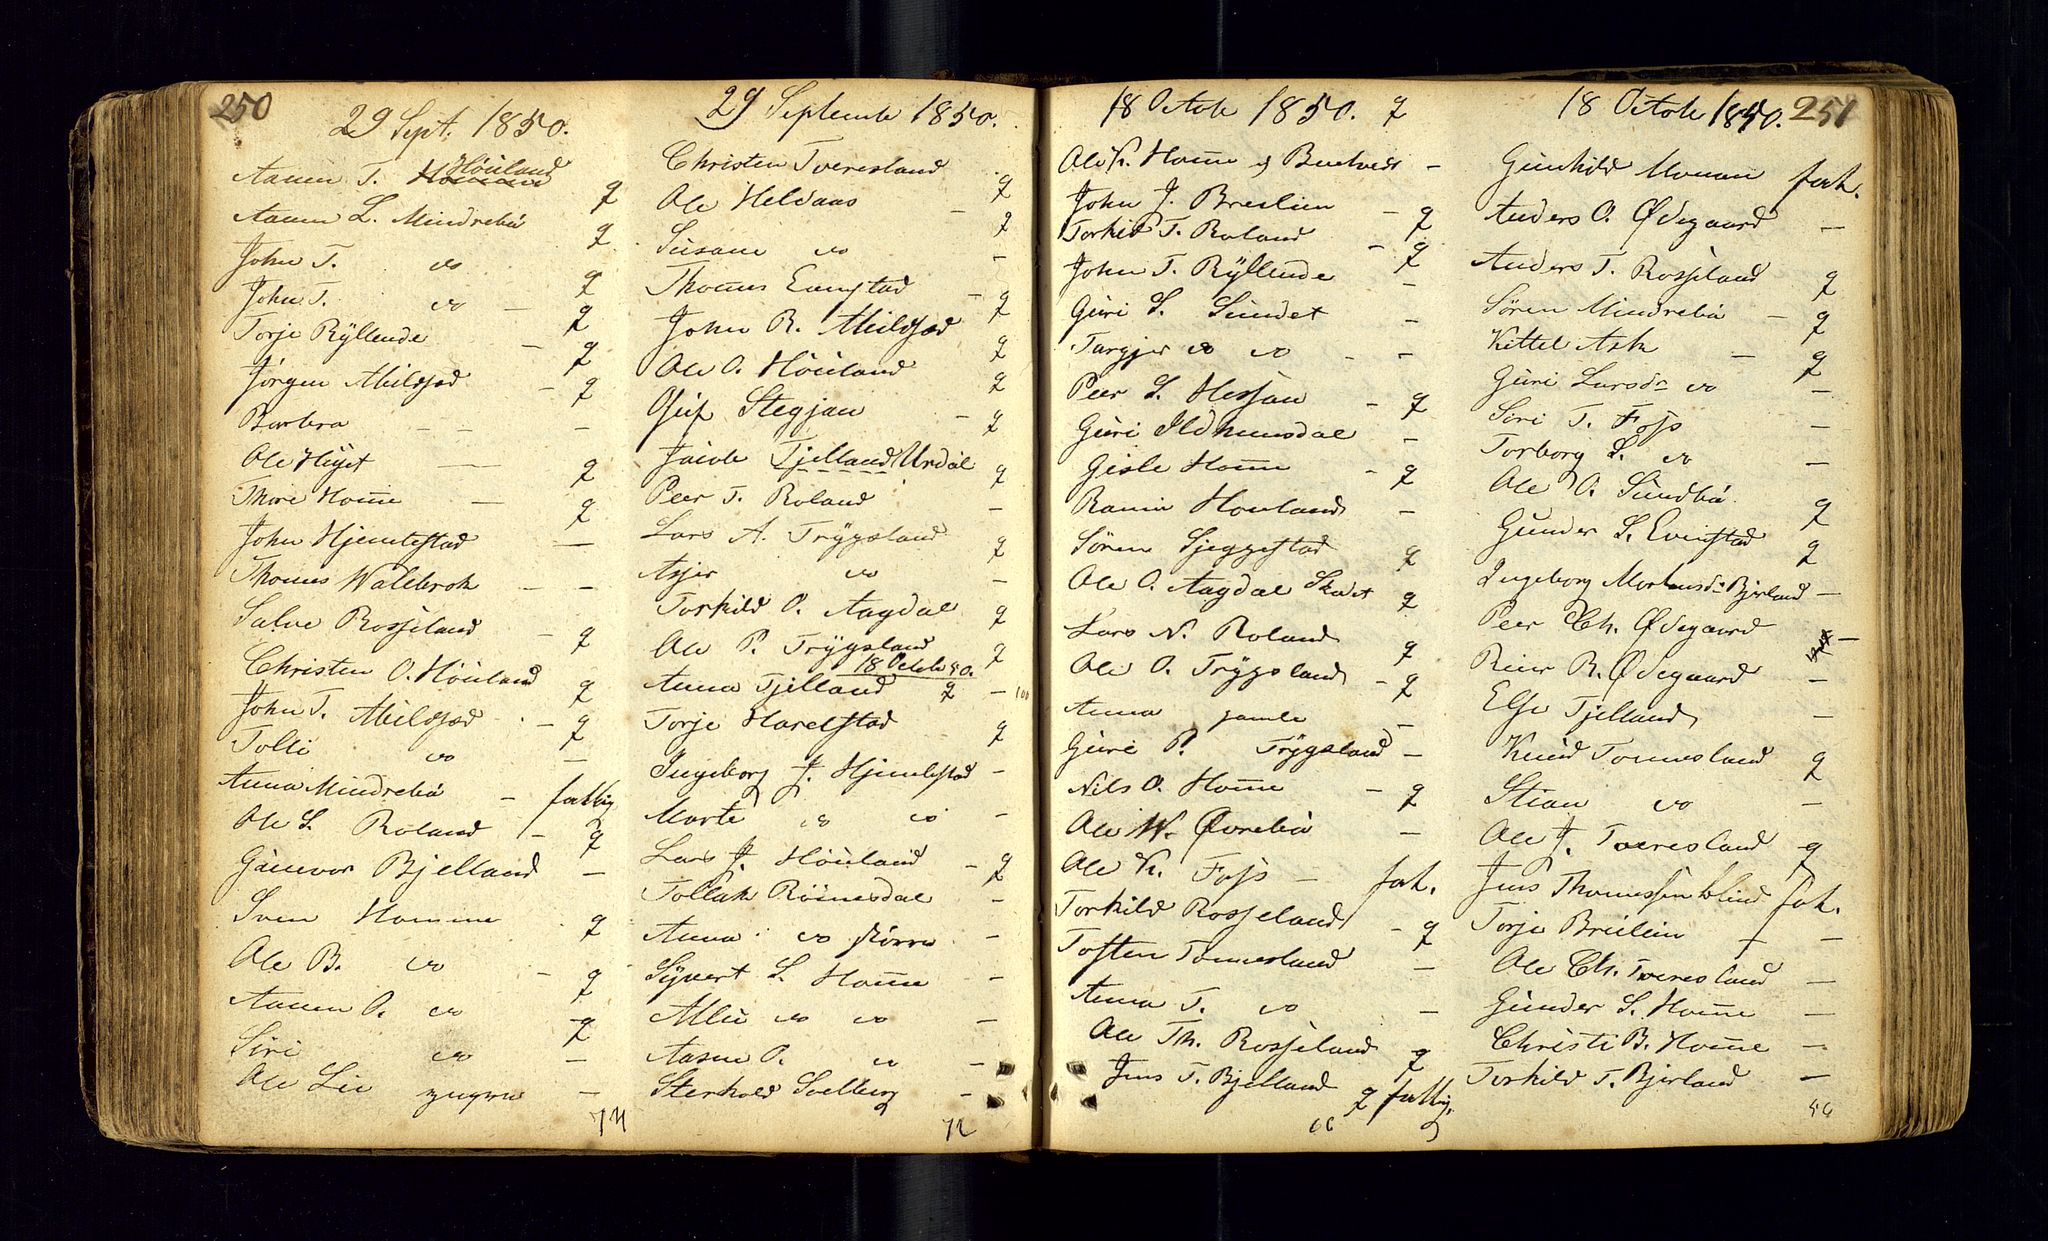 250
29 Sept. 1850.
Aanen T. Höüland
Aanen L. Mindrebö q
John T. do q
John T. do – q
Torje Rÿllende – q
Jörgen Mildsad – q
Barbra – – –
Ole Hüset – q
Thore Home – q
John Hjemlestad –
Thomas Wallebrok – –
Salve Rosseland – q
Christen O. Höüland q
John T. Mildsad – q
Tolli do –
Anna Mindrebö – fattig
Ole L Roland – q
Günevor Bjelland –
Sven Homme q
Ole B. do – q
Aanen O. do q
Siri do –
Ole Lie –
74
29 Septembr 1850.
Christen Tveresland q
Ole Heldaas – q
Susane do –
Thomas Eanstad – q
John R. Mildsad q
Ole O. Höüland q
Stegjan – q
Jacob Tjelland Urdal q
Peer T. Roland –
Lars A. Trÿgsland q
Asjer do –
Torkild O. Aagdal q
Ole P. Trÿgsland q
18 Octob 50.
Anna Tjelland q – 100
Torje Harelstad q
Ingeborg J. Hjemlestad –
Marte do do –
Lars J. Höüland – q
Tollak Röinesdal –
Anna do större –
Sÿvert L. Home –
do do –
Aasne O. do –
Sterkold Solberg –
72
18 Octob 1850. q
Ole K. Home – 
John J. Breilien – q
Torkild T. Roland – q
John T. Rÿllende –
Guri S. Sundet –
Targjer do do – –
Peer S. Hessan – q
Guri Ildhunsdal –
Gisle Home – q
Houland –
Sören Sjeggestad q
Ole O. Aagdal Skaiet q
Lars N. Roland q
Ole O. Trÿgsland – q
Anna gamle –
Guri P. Trÿgsland –
Nils O. Home – q
Ole W. Øvrebö –
Ole K. Foss – fat.
Torkild Rosseland – q
Tosten Tonnesland –
Anna T. do –
Ole Th. Rosseland q
Jens T. Bjelland q fattig
66
18 Octob 1850. 251
Gunhild Monan fat.
Anders O. Ødegaard –
Anders T. Rosseland q
Sören Mindrebö – q
Kittel Ask – q
Guri Larsdr do –
Siri T. Foss –
Torborg L. do –
Ole O. Sundbö q
Gunder L. Evenstad q
Ingeborg Mortensdr Bjerland –
Peer Ch. Ødegaard –
Reier R. Ødegaard –
Else Tjelland –
Knud Tonnesland q
Stian do –
Ole J. Tveresland q
Jens Thomassen blind fat.
Torje Breilein – –
Ole Ch. Tveresland –
Gunder S. Home –
Christi B. Home –
Torkild T. Bjerland –
56